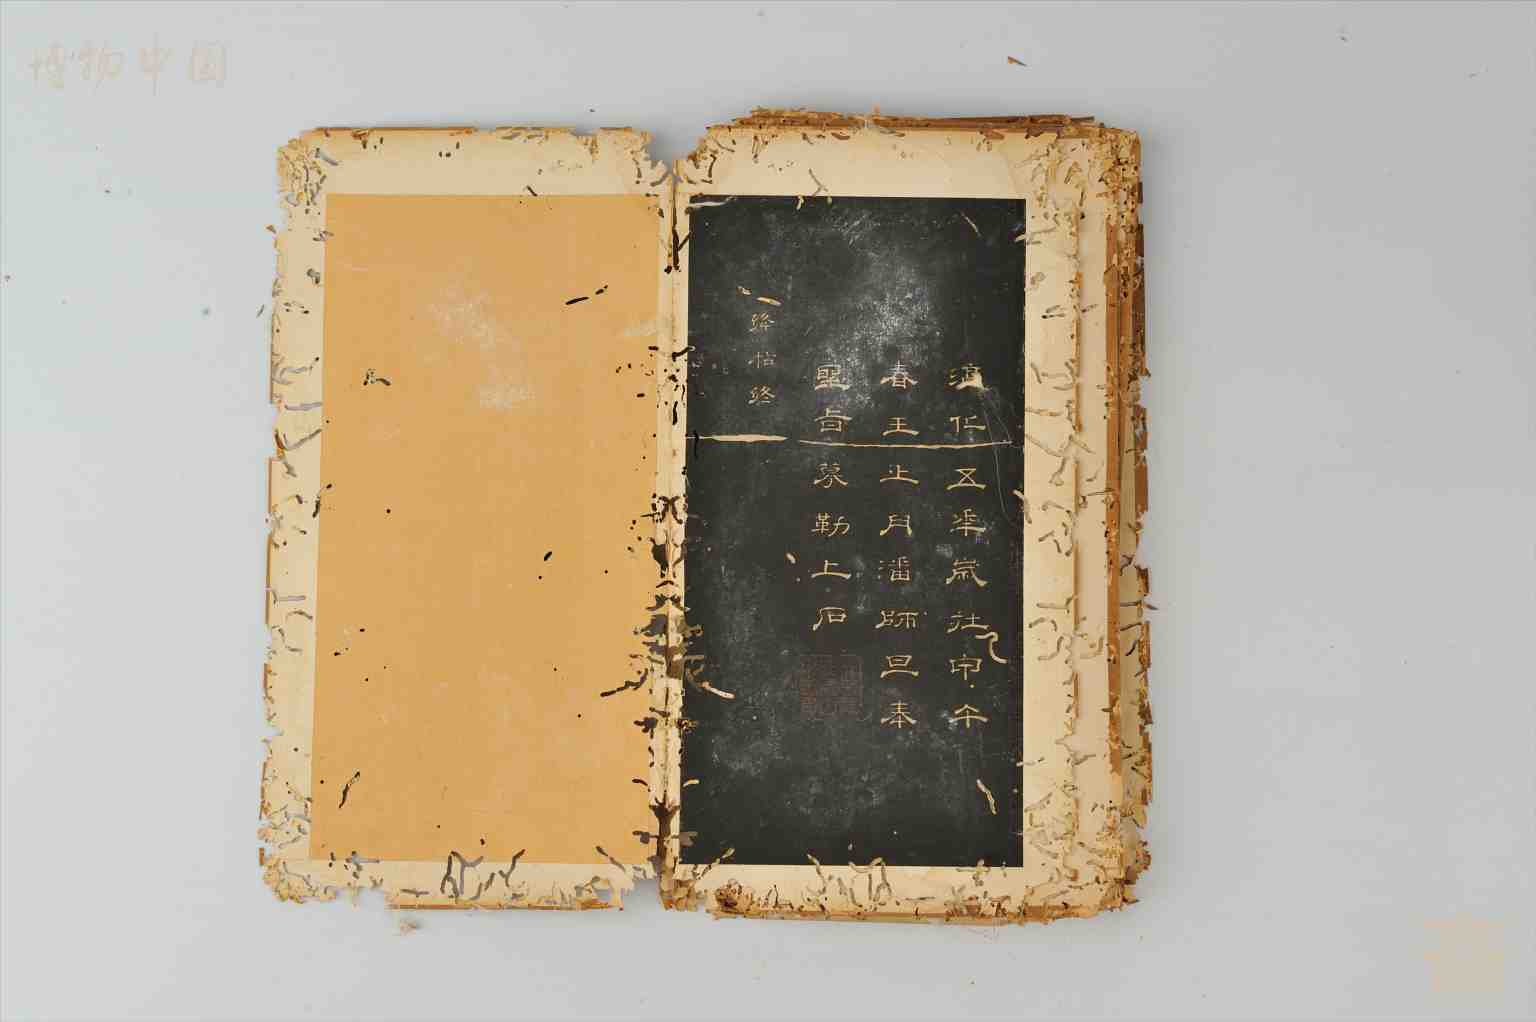 博物中国
淳化五年歲在甲午
春王正月潘師旦奉
聖旨摹勒上石
絳帖終